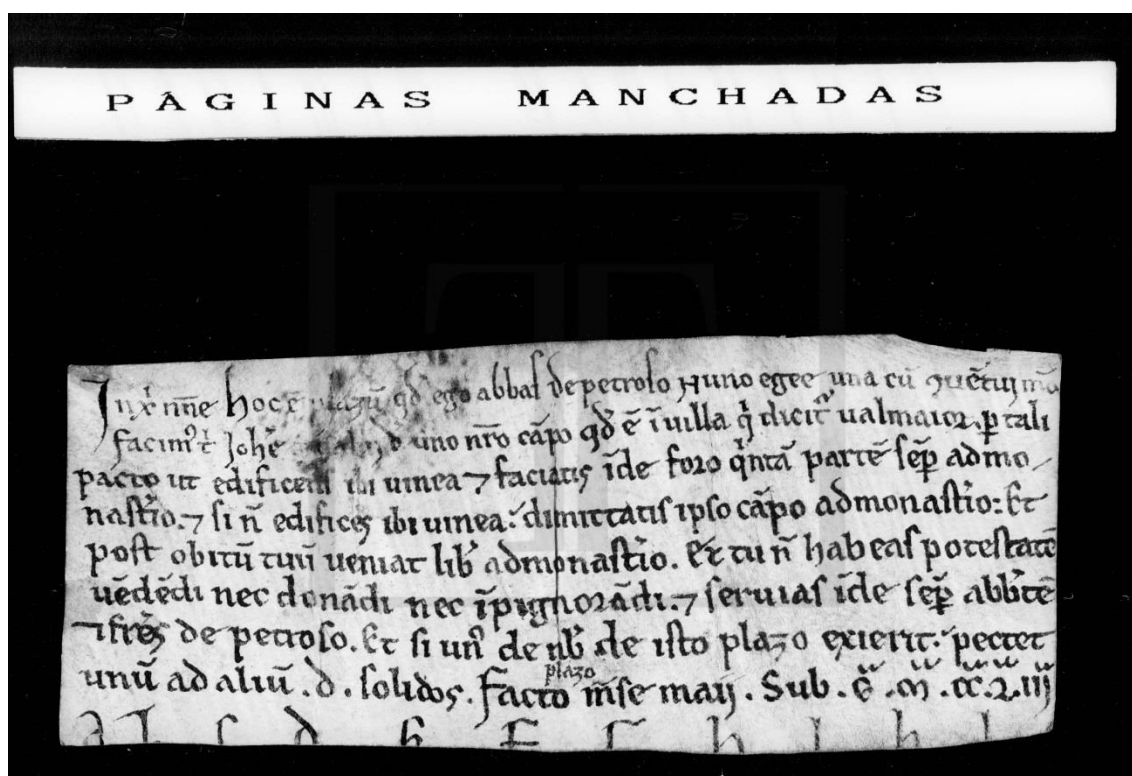 PÁGINAS MANCHADAS
In xp̃i nn̄e hoc ē plazū qd̄ ego abbas de petroso Nuno egee una cū ꝯuētuj mō
facimꝰ t̄ Johē uno nr̄o cāpo qd̄ ē ī uilla q̇ dicit᷑ ualmaior. ꝑ tali
pacto ut edificetis ibi uinea ⁊ faciatis īde foro q̇ntā partē sēp̄ ad mo
nastr̄io. ⁊ si n̄ edifices ibi uinea. dimittatis ipso cāpo ad monastr̄io. Et
post obitū tuū ueniat lib̄ ad monastr̄io. Et tu n̄ habeas potestatē
uēdēdi nec donādi nec īpignorādi. ⁊ seruias īde sēp̄ abb̄tē
⁊ fr̄es de petroso. Et si unꝰ de nb̄ de isto plazo exierit. pectet
unū ad aliū. d. solidos. facto plazo m̄se maij. Sub. ē. m̄. cc. 2. iij